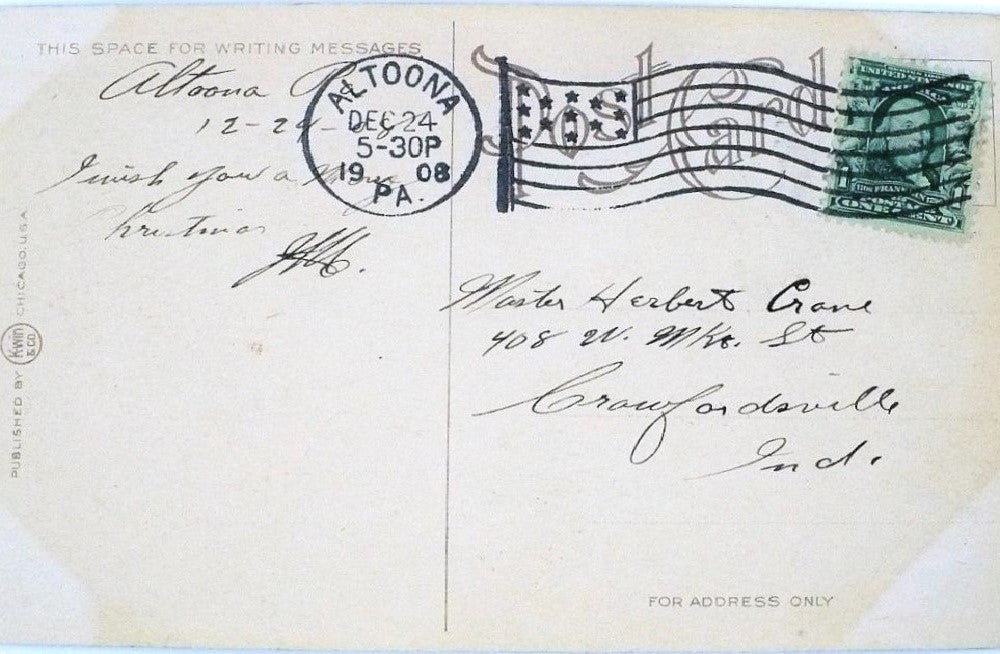 THIS SPACE FOR WRITING MESSAGES
Altoona Pa
12-24-08
I wish you a Merry
Christmas
ALTOONA
DEC 24
5-30P
1908
PA.
Post Card
UNITED STATES
FRANKLIN
ONE CENT
Master Herbert Crane
408 W. Mkt. St
Crawfordsville
Ind.
FOR ADDRESS ONLY
PUBLISHED BY KWIN & CO. CHICAGO, U.S.A.